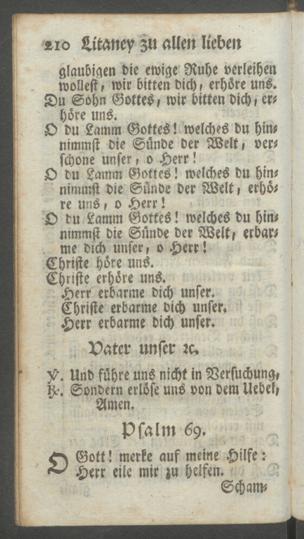 210 Litaney zu allen lieben
glaubigen die ewige Ruhe verleihen
wollest, wir bitten dich, erhöre uns.
Du Sohn Gottes, wir bitten dich, er-
höre uns.
O du Lamm Gottes! welches du hin-
nimmst die Sünde der Welt, ver-
schone unser, o Herr!
O du Lamm Gottes! welches du hin-
nimmst die Sünde der Welt, erhö-
re uns, o Herr!
O du Lamm Gottes! welches du hin-
nimmst die Sünde der Welt, erbar-
me dich unser, o Herr!
Christe höre uns.
Christe erhöre uns.
Herr erbarme dich unser.
Christe erbarme dich unser.
Herr erbarme dich unser.
Vater unser ꝛc.
℣. Und führe uns nicht in Versuchung,
℟. Sondern erlöse uns von dem Uebel,
Amen.
Psalm 69.
O Gott! merke auf meine Hilfe:
Herr eile mir zu helfen.
Scham-